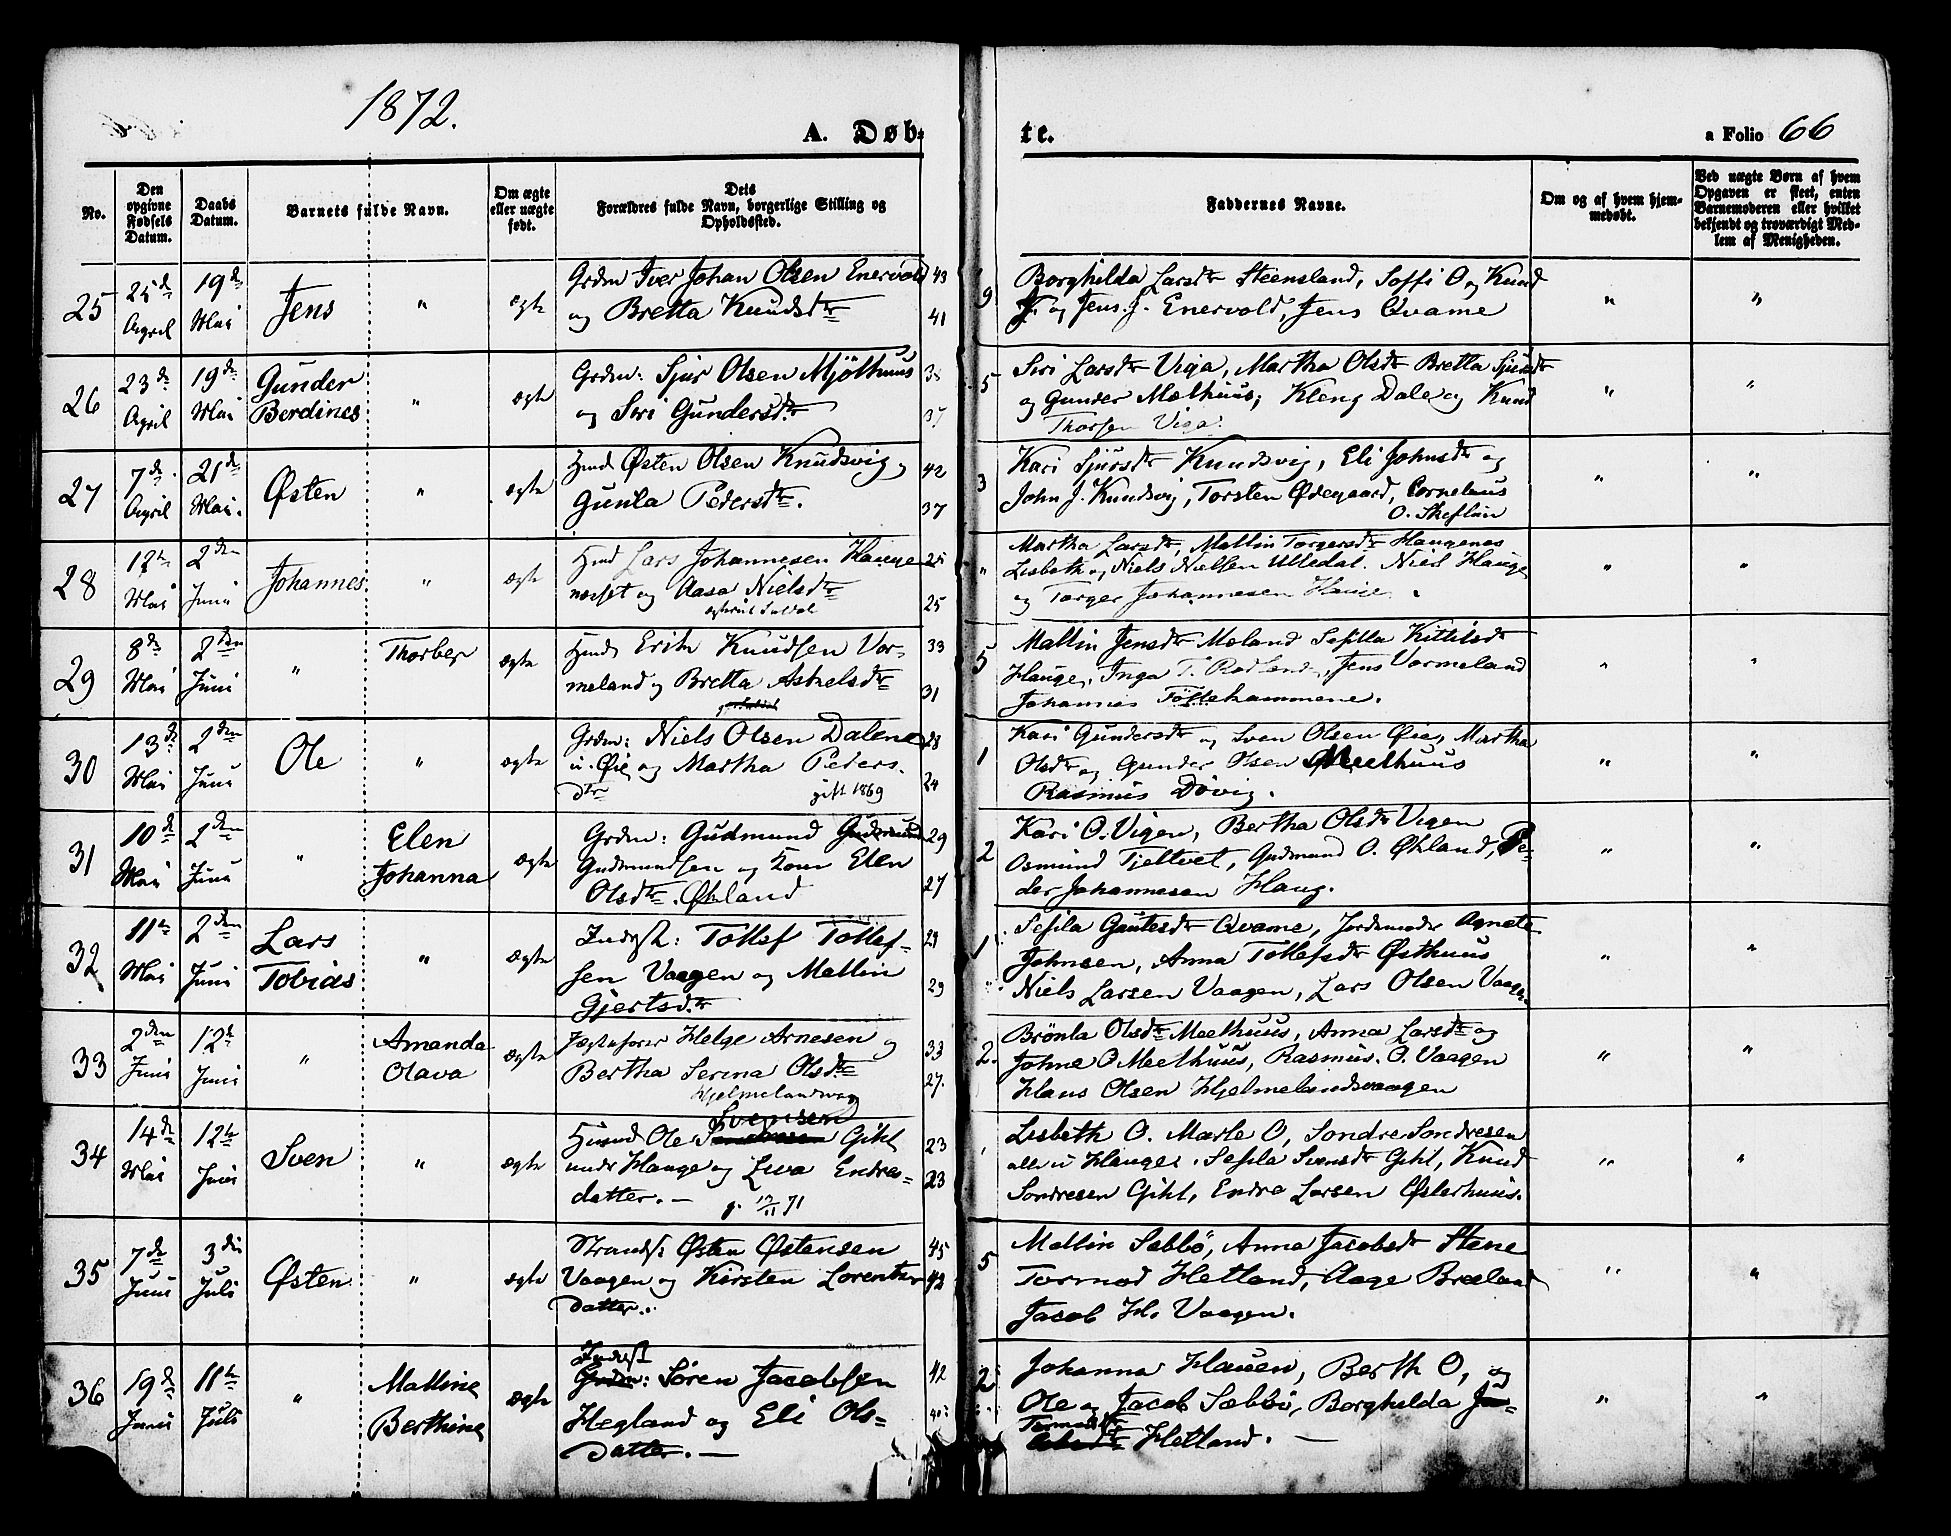 1872.
A. Døb-
te.
a Folio 66
No.
Den
opgivne
Fødsels
Datum.
Daabs
Datum.
Barnets fulde Navn.
Om ægte
eller uægte
født.
Dets
Forældres fulde Navn, borgerlige Stilling og
Opholdssted.
Faddernes Navne.
Om og af hvem hjem-
medøbt.
Ved uægte Børn af hvem
Opgaven er skeet, enten
Barnemoderen eller hvilket
bekjendt og troværdigt Med-
lem af Menigheden.
25
25de
April
19de
Mai
Jens
"
ægte
Grdm Iver Johan Olsen Enervold 43
og Bretta Knudsdtr 41
9
Borghilda Larsdtr Steensland, Soffi O og Knud
J. og Jens J. Enervold, Jens Qvame
"
"
26
23de
April
19de
Mai
Gunder
Berdines
"
ægte
Grdm: Sjur Olsen Mjølhuus 38
og Siri Gundersdtr 37
5
Siri Larsdtr Viga, Martha Olsdtr Bretta Sjursdtr
og Gunder Mælhuus, Kleng Dale og Knud
Thorsen Viga.
"
"
27
7de
April
21de
Mai.
Østen
"
ægte
Huusd Østen Olsen Knudsvig, 42
Gunla Pedersdtr. 37
3
Kari Sjursdtr Knudsvig, Eli Johnsdtr og
John J. Knudsvig, Torsten Ødegaard, Cornelius
O. Skeflun
"
"
28
12te
Mai
2den
Juni
Johannes
"
ægte
Husd Lars Johannesen Hauge 25
næsset og Aasa Nielsdtr 25
"
Martha Larsdtr, Mallin Torgersdtr Haugenes
Lisbeth og Niels Nielsen Ulledal. Niels Hauge
og Torger Johannesen Hauge.
"
"
29
8de
Mai
2den
Juni
"
Thorber
ægte
Husd Erik Knudsen Vor- 33
meland og Bretta Aslelsdtr 31
5
Mallin Jensdtr Meland Sesilla Kittilsdtr
Hauge, Inga T. Rødland, Jens Vormeland
Johannes Tøttehammene.
"
"
30
13de
Mai
2den
Juni
Ole
"
ægte
Grdm: Niels Olsen Dalene 28
u. Øie og Martha Peders. 24
dtr gift 1869
1
Kari Gundersdtr og Sven Olsen Øie, Martha
Olsdtr og Gunder Olsen Meelhuus
Rasmus Døvig.
"
"
31
10de
Mai
2den
Juni
"
Elen
Johanna
ægte
Grdm: Gudmund Gudmund 29
Gudmundsen og Kone Elen 27
Olsdtr. Økland
2
Kari O. Vigen, Bertha Olsdtr Vigen
Osmund Tjeltvet, Gudmund O. Økland, Pe-
der Johannesen Haug.
"
"
32
11te
Mai
2den
Juni
Lars
Tobias
"
ægte
Inderst: Tollef Tollef- 29
sen Vaagen og Mallin 29
Gjertsdtr
1
Sesila Gautesdtr Qvame, Jordemoder Agnete
Johnsen, Anna Tollefsdtr Østhuus
Niels Larsen Vaagen, Lars Olsen Vaagen
"
"
33
2den
Juni
12te
Juni
"
Amanda
Olava
ægte
Jægtefører Helge Arnesen og 33
Bertha Serina Olsdtr 27.
Hjelmelandvag
2.
Brønla Olsdtr Meelhuus, Anna Larsdtr og
Johne O. Meelhuus, Rasmus. O. Vaagen
Hans Olsen Hjelmelandsvaagen
"
"
34
14de
Mai
12te
Juni
Sven
"
ægte
Svensen
Huusd Ole Gikl 23
under Hauge og Liva Endres- 23
datter. – g. 12/11 71
Lisbeth O. Marle O, Sondre Sondresen
alle u Hauge. Sesila Svensdtr Gikl, Knud
Sondresen Gikl, Endre Larsen Østerhuus.
"
"
35
7de
Juni
3die
Juli
Østen
"
ægte
Strandsd: Østen Østensen 45
Vaagen og Kirsten Lorents 42
datter.
5
Mallin Sæbbø, Anna Jacobsdtr Stene
Tormod Hetland, Aage Breiland
Jacob H. Vaagen.
"
"
36
19de
Juni
11te
Juli
"
Malline
Berthine
ægte
Inderst
Grdm: Søren Jacobsen 42
Hegland og Eli Ols- 40
datter. –
2
Johanna Hauen, Berth O, og
Ole og Jacob Sæbbø, Borghilda Ja-
Tormodsdtr
cobsdtr Hetland. –
"
"